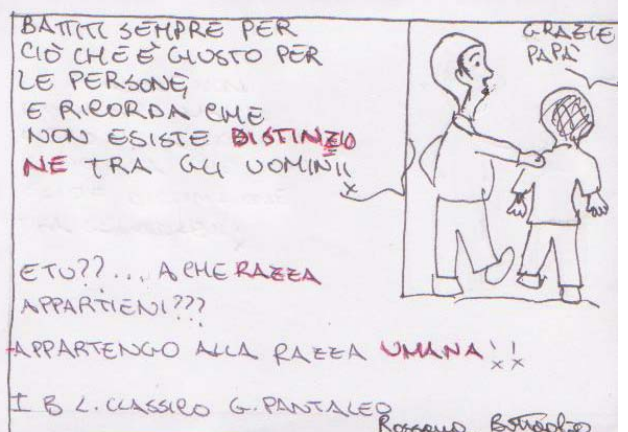 BATTITI SEMPRE PER
CIÒ CHE È GIUSTO PER
LE PERSONE,
E RICORDA CHE
NON ESISTE DISTINZIO
NE TRA GLI UOMINI!
GRAZIE
PAPÀ
E TU??... A CHE RAZZA
APPARTIENI???
APPARTENGO ALLA RAZZA UMANA!!
I B L. CLASSICO G. PANTALEO